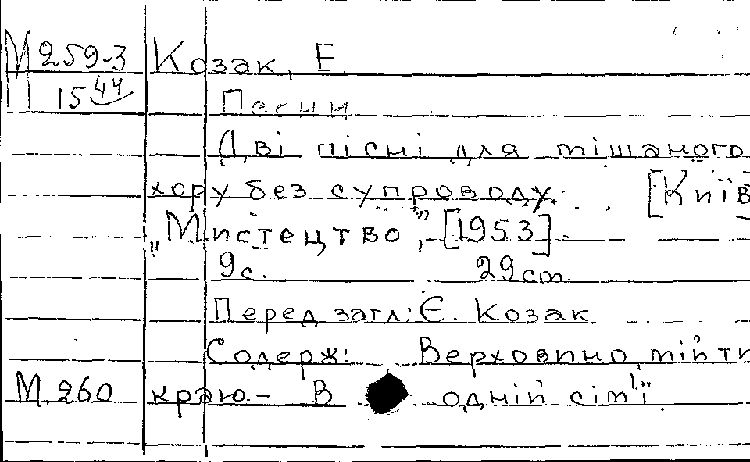 М 259-3 Козак, Е
15 44 Песни
Дві пісні для мішаного
хору без супроводу. [Київ
„Мистецтво", [1953].
9с. 29 cm
Перед загл: Є. Козак
Содерж: Верховино, мій ти
М 260 краю – В одній сім'ї